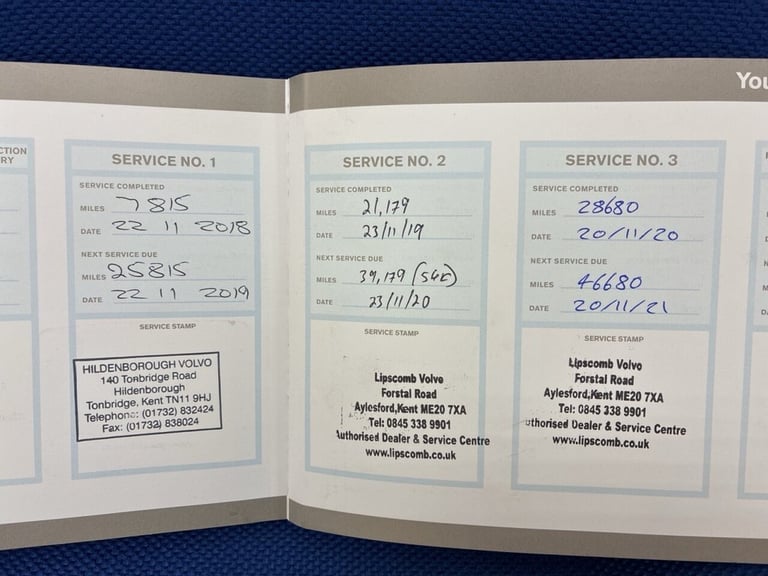 You
CTION
RY
SERVICE NO. 1
SERVICE COMPLETED
MILES 7815
DATE 22 11 2018
NEXT SERVICE DUE
MILES 25815
DATE 22 11 2019
SERVICE STAMP
HILDENBOROUGH VOLVO
140 Tonbridge Road
Hildenborough
Tonbridge, Kent TN11 9HJ
Telephone: (01732) 832424
Fax: (01732) 838024
SERVICE NO. 2
SERVICE COMPLETED
MILES 21,179
DATE 23/11/19
NEXT SERVICE DUE
MILES 39,179 (54K)
DATE 23/11/20
SERVICE STAMP
Lipscomb Volvo
Forstal Road
Aylesford,Kent ME20 7XA
Tel: 0845 338 9901
Authorised Dealer & Service Centre
www.lipscomb.co.uk
SERVICE NO. 3
SERVICE COMPLETED
MILES 28680
DATE 20/11/20
NEXT SERVICE DUE
MILES 46680
DATE 20/11/21
SERVICE STAMP
Lipscomb Volvo
Forstal Road
Aylesford,Kent ME20 7XA
Tel: 0845 338 9901
uthorised Dealer & Service Centre
www.lipscomb.co.uk